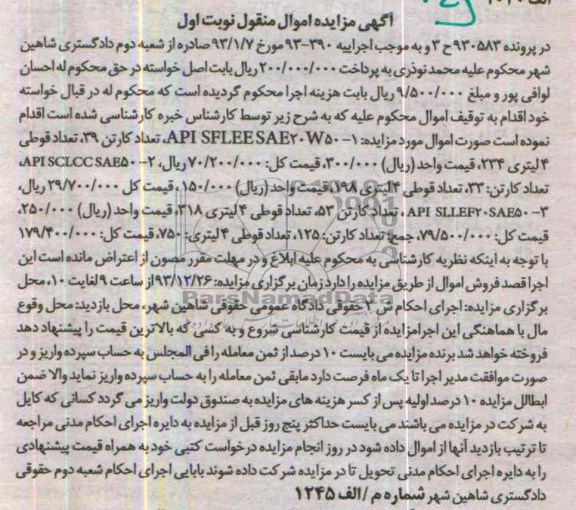 الف ۱۰۲۰
آگهی مزایده اموال منقول نوبت اول
در پرونده ۹۳۰۵۸۳ح ۳ و به موجب اجراییه ۳۹۰-۹۳ مورخ ۹۳/۱/۷ صادره از شعبه دوم دادگستری شاهین
شهر محکوم علیه محمد نوذری به پرداخت ۲۰۰/۰۰۰/۰۰۰ ریال بابت اصل خواسته در حق محکوم له احسان
لوافی پور و مبلغ ۹/۵۰۰/۰۰۰ ریال بابت هزینه اجرا محکوم گردیده است که محکوم له در قبال خواسته
خود اقدام به توقیف اموال محکوم علیه که به شرح زیر توسط کارشناس خبره کارشناسی شده است اقدام
نموده است صورت اموال مورد مزایده: ۱- API SFLEE SAE۲۰W۵۰، تعداد کارتن ۳۹، تعداد قوطی
۴ لیتری ۲۳۴، قیمت واحد (ریال) ۳۰۰/۰۰۰، قیمت کل: ۷۰/۲۰۰/۰۰۰ ریال، ۲- API SCLCC SAE۵۰،
تعداد کارتن: ۳۳، تعداد قوطی ۴ لیتری ۱۹۸، قیمت واحد (ریال) ۱۵۰/۰۰۰، قیمت کل ۲۹/۷۰۰/۰۰۰ ریال،
۳- API SLLEF۲۰SAE۵۰، تعداد کارتن ۵۳، تعداد قوطی ۴ لیتری ۳۱۸، قیمت واحد (ریال) ۲۵۰/۰۰۰،
قیمت کل: ۷۹/۵۰۰/۰۰۰، جمع: تعداد کارتن: ۱۲۵، تعداد قوطی ۴ لیتری: ۷۵۰، قیمت کل: ۱۷۹/۴۰۰/۰۰۰
با توجه به اینکه نظریه کارشناسی به محکوم علیه ابلاغ و در مهلت مقرر مصون از اعتراض مانده است این
اجرا قصد فروش اموال از طریق مزایده را دارد زمان برگزاری مزایده: ۹۳/۱۲/۲۶ از ساعت ۹ لغایت ۱۰، محل
برگزاری مزایده: اجرای احکام ش ۲ حقوقی دادگاه عمومی حقوقی شاهین شهر، محل بازدید: محل وقوع
مال با هماهنگی این اجرا مزایده از قیمت کارشناسی شروع و به کسی که بالاترین قیمت را پیشنهاد دهد
فروخته خواهد شد برنده مزایده می بایست ۱۰ درصد از ثمن معامله را فی المجلس به حساب سپرده واریز و در
صورت موافقت مدیر اجرا تا یک ماه فرصت دارد مابقی ثمن معامله را به حساب سپرده واریز نماید والا ضمن
ابطال مزایده ۱۰ درصد اولیه پس از کسر هزینه های مزایده به صندوق دولت واریز می گردد کسانی که کایل
به شرکت در مزایده می باشند می بایست حداکثر پنج روز قبل از مزایده به دایره اجرای احکام مدنی مراجعه
تا ترتیب بازدید آنها از اموال داده شود در روز انجام مزایده درخواست کتبی خود به همراه قیمت پیشنهادی
را به دایره اجرای احکام مدنی تحویل تا در مزایده شرکت داده شوند بابایی اجرای احکام شعبه دوم حقوقی
دادگستری شاهین شهر شماره م /الف ۱۲۴۵
ParsNamadData